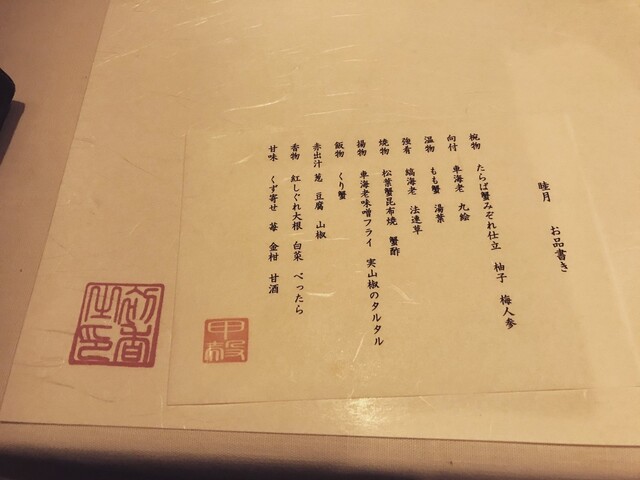 睦月　お品書き
椀物　たらば蟹みぞれ仕立　柚子　梅人参
向付　車海老　九絵
温物　もも蟹　湯葉
強肴　縞海老　法連草
焼物　松葉蟹昆布焼　蟹酢
揚物　車海老味噌フライ　実山椒のタルタル
飯物　くり蟹
赤出汁　葱　豆腐　山椒
香物　紅しぐれ大根　白菜　べったら
甘味　くず寄せ　苺　金柑　甘酒
甲殻